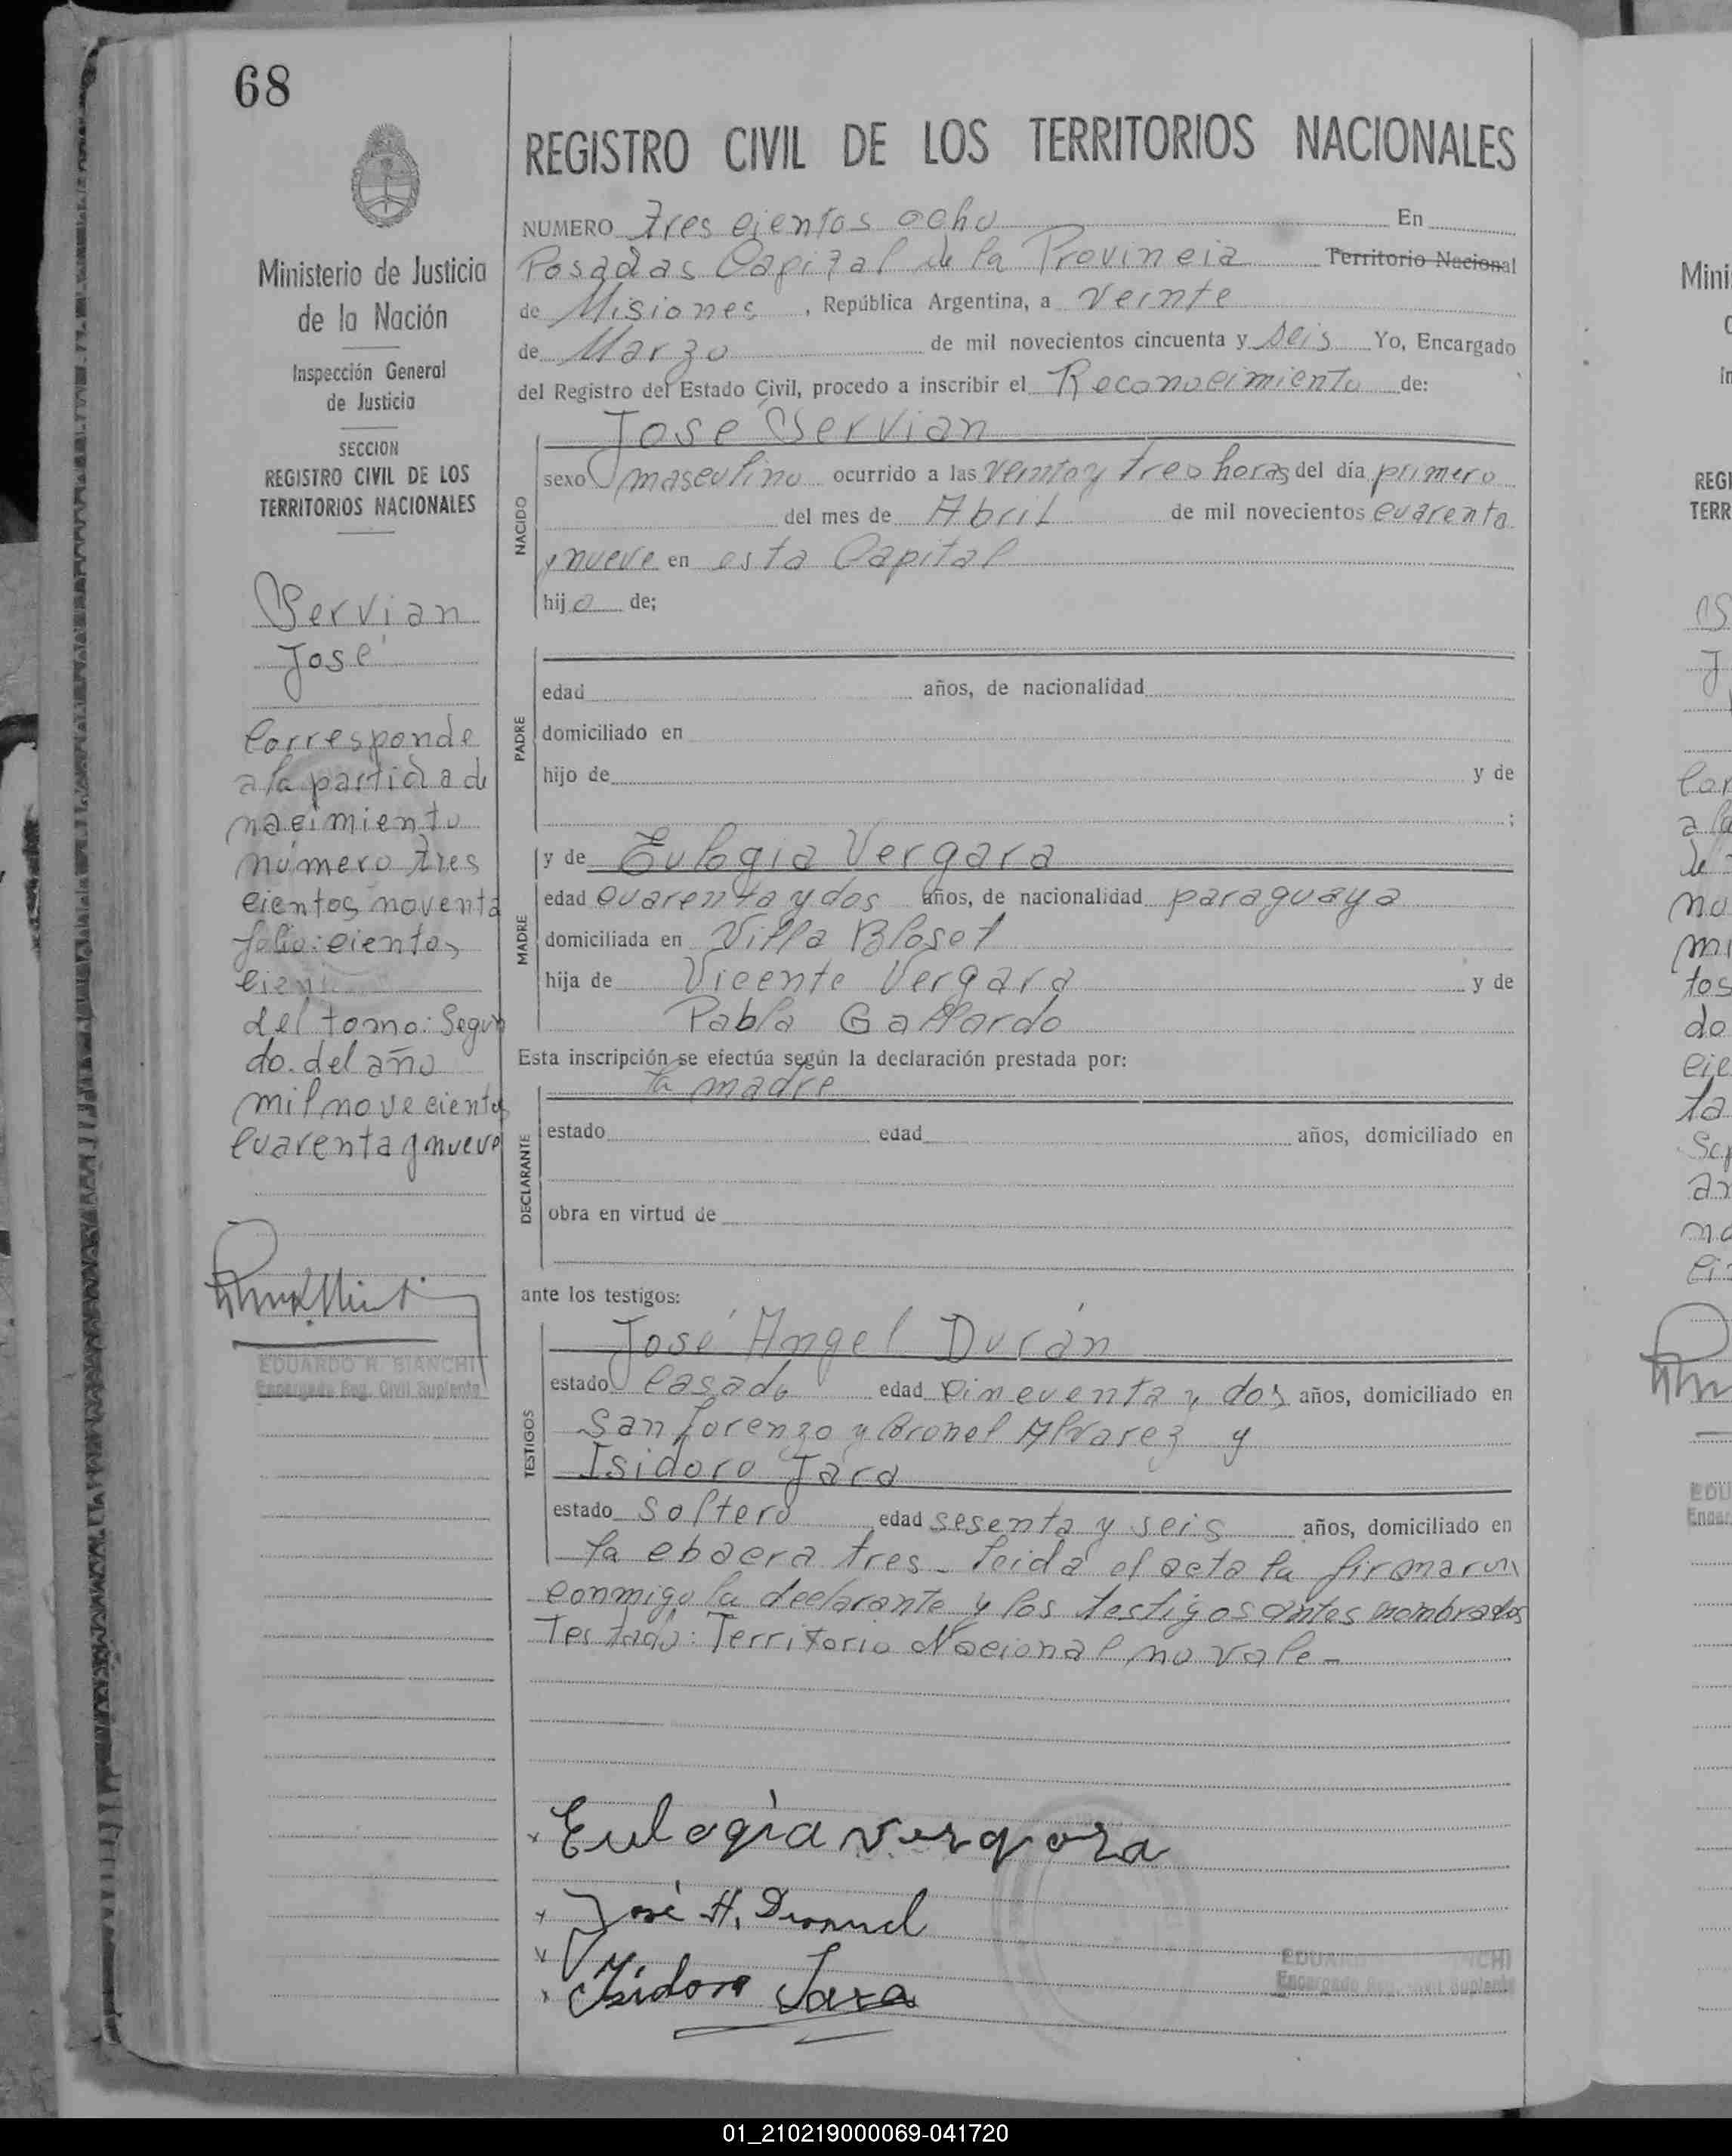 68
REGISTRO CIVIL DE LOS TERRITORIOS NACIONALES
Ministerio de Justicia
de la Nación
Inspección General
de Justicia
SECCION
REGISTRO CIVIL DE LOS
TERRITORIOS NACIONALES
Servian
José
Corresponde
a la partida de
nacimiento
número tres
cientos noventa
folio: cientos
cien
del tomo: Segun
do. del año
mil novecientos
cuarenta y nueve
EDUARDO H. BIANCHI
Encargado Reg. Civil Suplente
NUMERO tres cientos ocho En
Posadas Capital de la Provincia Territorio Nacional
de Misiones, República Argentina, a veinte
de Marzo de mil novecientos cincuenta y seis Yo, Encargado
del Registro del Estado Civil, procedo a inscribir el Reconocimiento de:
José Servian
NACIDO
sexo masculino ocurrido a las veinte y tres horas del día primero
del mes de Abril de mil novecientos cuarenta
y nueve en esta Capital
hijo de;
PADRE
edad años, de nacionalidad
domiciliado en
hijo de y de
;
MADRE
y de Eulogia Vergara
edad cuarenta y dos años, de nacionalidad paraguaya
domiciliada en Villa Bloset
hija de Vicente Vergara y de
Pabla Gallardo
Esta inscripción se efectúa según la declaración prestada por:
la madre
DECLARANTE
estado edad años, domiciliado en
obra en virtud de
ante los testigos:
TESTIGOS
José Angel Durán
estado casado edad cincuenta y dos años, domiciliado en
San Lorenzo y Coronel Alvarez y
Isidoro Jara
estado soltero edad sesenta y seis años, domiciliado en
la chacra tres - leida el acta la firmaron
conmigo la declarante y los testigos antes nombrados
Testado: Territorio Nacional no vale -
Eulogia vergara
José A.
Isidoro Jara
EDUARDO BIANCHI
Encargado Reg. Civil Suplente
Mini
REGI
TERR
01_210219000069-041720